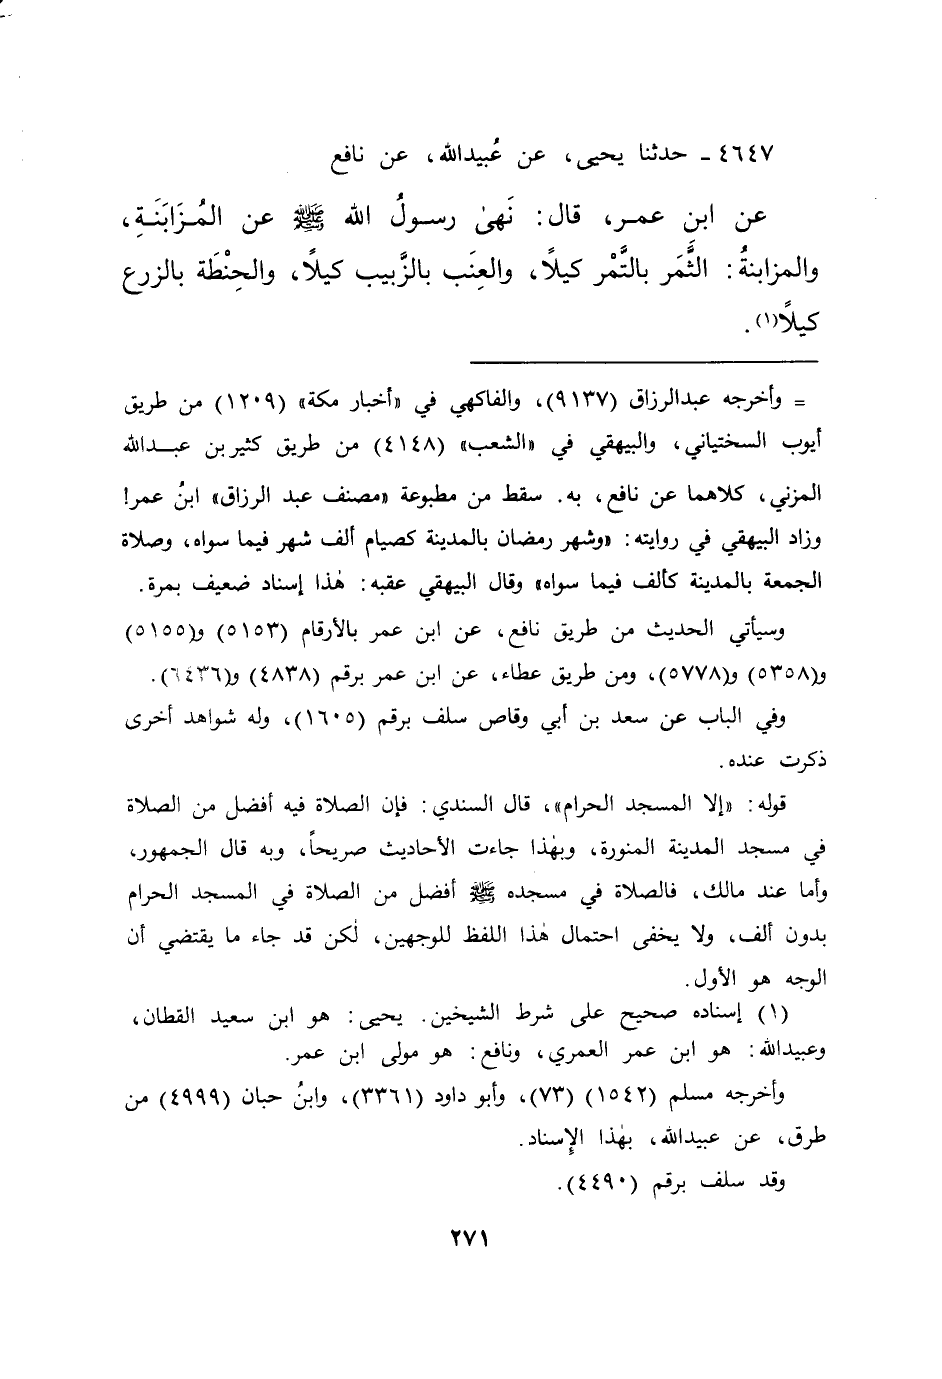 ٤٦٤٧ ـ حدثنا يحيى، عن عُبيدالله، عن نافع
عن ابنِ عمـر، قال: نَهىٰ رسـولُ الله ﷺ عن المُـزَابَنَـةِ،
والمزابنةُ: الثَّمَر بالتَّمْر كيلًا، والعِنَب بالزَّبيب كيلًا، والحِنْطَة بالزرع
كيلًا(١).
= وأخرجه عبدالرزاق (٩١٣٧)، والفاكهي في «أخبار مكة» (١٢٠٩) من طريق
أيوب السختياني، والبيهقي في «الشعب» (٤١٤٨) من طريق كثير بن عبـدالله
المزني، كلاهما عن نافع، به. سقط من مطبوعة «مصنف عبد الرزاق» ابنُ عمر!
وزاد البيهقي في روايته: «وشهر رمضان بالمدينة كصيام ألف شهر فيما سواه، وصلاة
الجمعة بالمدينة كألف فيما سواه» وقال البيهقي عقبه: هٰذا إسناد ضعيف بمرة.
وسيأتي الحديث من طريق نافع، عن ابن عمر بالأرقام (٥١٥٣) و(٥١٥٥)
و(٥٣٥٨) و(٥٧٧٨)، ومن طريق عطاء، عن ابن عمر برقم (٤٨٣٨) و(٦٤٣٦).
وفي الباب عن سعد بن أبي وقاص سلف برقم (١٦٠٥)، وله شواهد أخرى
ذكرت عنده.
قوله: «إلا المسجد الحرام»، قال السندي: فإن الصلاة فيه أفضل من الصلاة
في مسجد المدينة المنورة، وبهٰذا جاءت الأحاديث صريحاً، وبه قال الجمهور،
وأما عند مالك، فالصلاة في مسجده ﷺ أفضل من الصلاة في المسجد الحرام
بدون ألف، ولا يخفى احتمال هٰذا اللفظ للوجهين، لٰكن قد جاء ما يقتضي أن
الوجه هو الأول.
(١) إسناده صحيح على شرط الشيخين. يحيى: هو ابن سعيد القطان،
وعبيدالله: هو ابن عمر العمري، ونافع: هو مولى ابن عمر.
وأخرجه مسلم (١٥٤٢) (٧٣)، وأبو داود (٣٣٦١)، وابنُ حبان (٤٩٩٩) من
طرق، عن عبيدالله، بهٰذا الإِسناد.
وقد سلف برقم (٤٤٩٠).
٢٧١